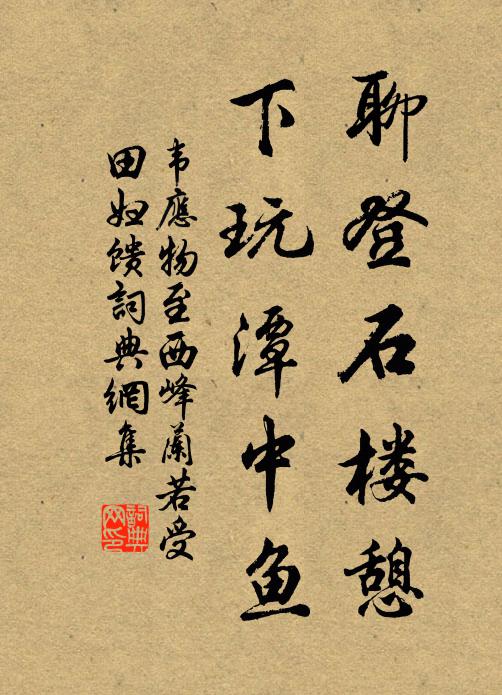 聊登石楼憩
下玩潭中鱼
韦應物至西峰蘭若受
田妇馈詞典網集
詞典网印